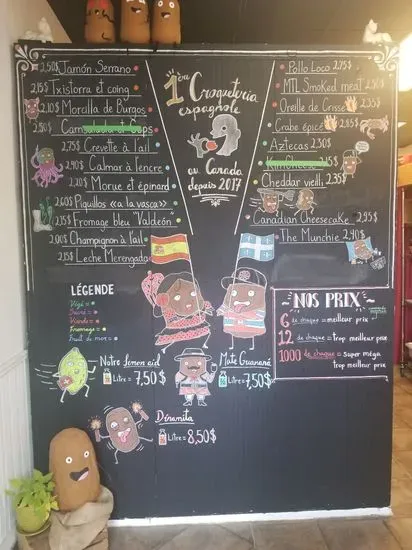 1ère Croqueteria
espagnole
au Canada
depuis 2017
2,50$ Jamón Serrano
2,15$ Txistorra et coing
2,10$ Morcilla de Burgos
2,75$ Crevette à l'ail
2,40$ Calmar à l'encre
2,20$ Morue et épinard
2,60$ Piquillos «a la vasca»
2,15$ Fromage bleu "Valdeón"
2,00$ Champignon à l'ail
2,15$ Leche Merengada
Pollo Loco 2,75$
MTL Smoked meat
Oreille de Crisse
Crabe épicé
Aztecas 2,30$
Cheddar vieilli 2,35$
Canadian Cheesecake 2,95$
The Munchie 2,40$
LÉGENDE
Végé =
Sucré =
Viande =
Fromage =
Fruit de mer =
NOS PRIX
6 de chaque = meilleur prix
12 de chaque = trop meilleur prix
1000 de chaque = super méga
trop meilleur prix
Notre lemon aid
Litre = 7,50$
Mate Guaraná
Litre = 7,50$
Litre = 8,50$